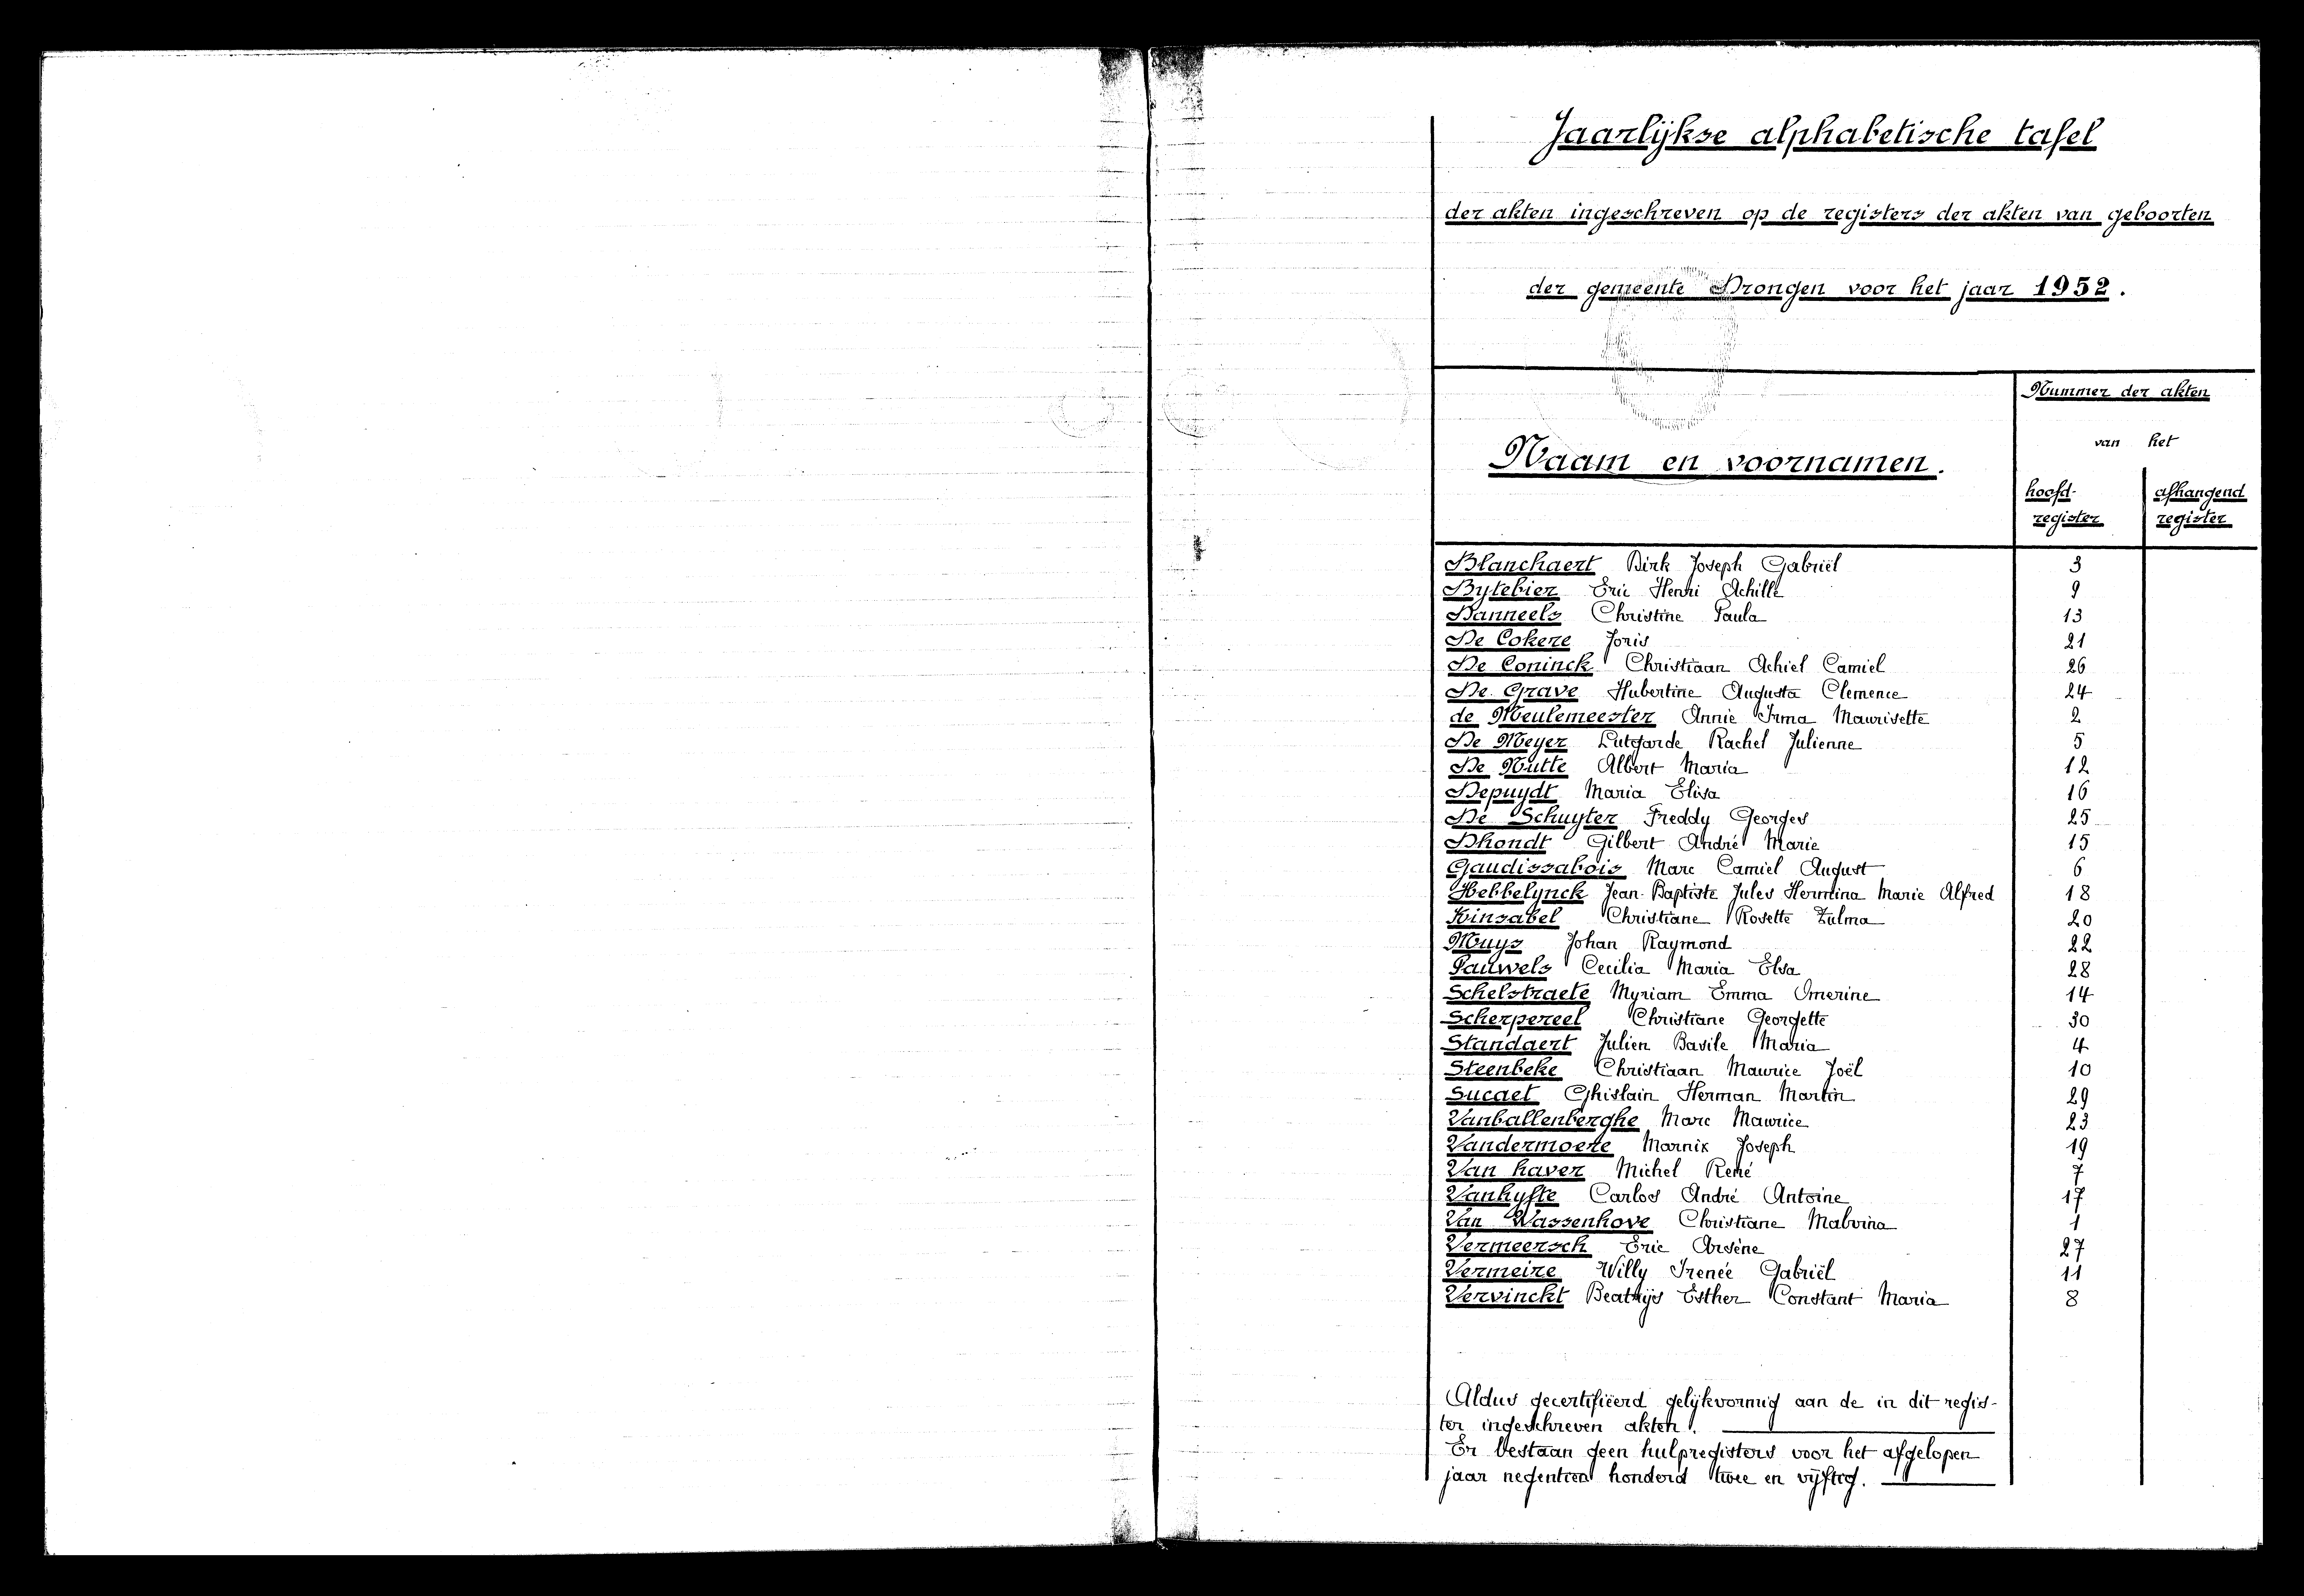 Jaarlijkse alphabetische tafel
der akten ingeschreven op de registers der akten van geboorten
der gemeente Drongen voor het jaar 1952.
Nummer der akten
van het
Naam en voornamen.
hoofd- afhangend
register register
Blanchaert Dirk Joseph Gabriël 3
Bytebier Eric Henri Achille 9
Danneels Christine Paula 13
De Cokere Joris 21
De Coninck Christiaan Achiel Camiel 26
De Grave Hubertine Augusta Clemence 24
de Meulemeester Annie Irma Maurisette 2
De Meyer Lutgarde Rachel Julienne 5
De Nutte Albert Maria 12
Depuydt Maria Elisa 16
De Schuyter Freddy Georges 25
Dhondt Gilbert André Marie 15
Gaudissabois Marc Camiel August 6
Hebbelynck Jean-Baptiste Jules Hermina Marie Alfred 18
Kinsabel Christiane Rosette Zulma 20
Muys Johan Raymond 22
Pauwels Cecilia Maria Elsa 28
Schelstraete Myriam Emma Omerine 14
Scherpereel Christiane Georgette 30
Standaert Julien Basile Maria 4
Steenbeke Christiaan Maurice Joël 10
Sucaet Ghislain Herman Martin 29
Vanballenberghe Marc Maurice 23
Vandermoere Marnix Joseph 19
Van haver Michel René 7
Vanhyfte Carlos André Antoine 17
Van Wassenhove Christiane Malvina 1
Vermeersch Eric Arsène 27
Vermeire Willy Irenée Gabriël 11
Vervinckt Beatrijs Esther Constant Maria 8
Aldus gecertifiëerd gelijkvormig aan de in dit regis-
ter ingeschreven akten.
Er bestaan geen hulpregisters voor het afgelopen
jaar negentien honderd twee en vijftig.